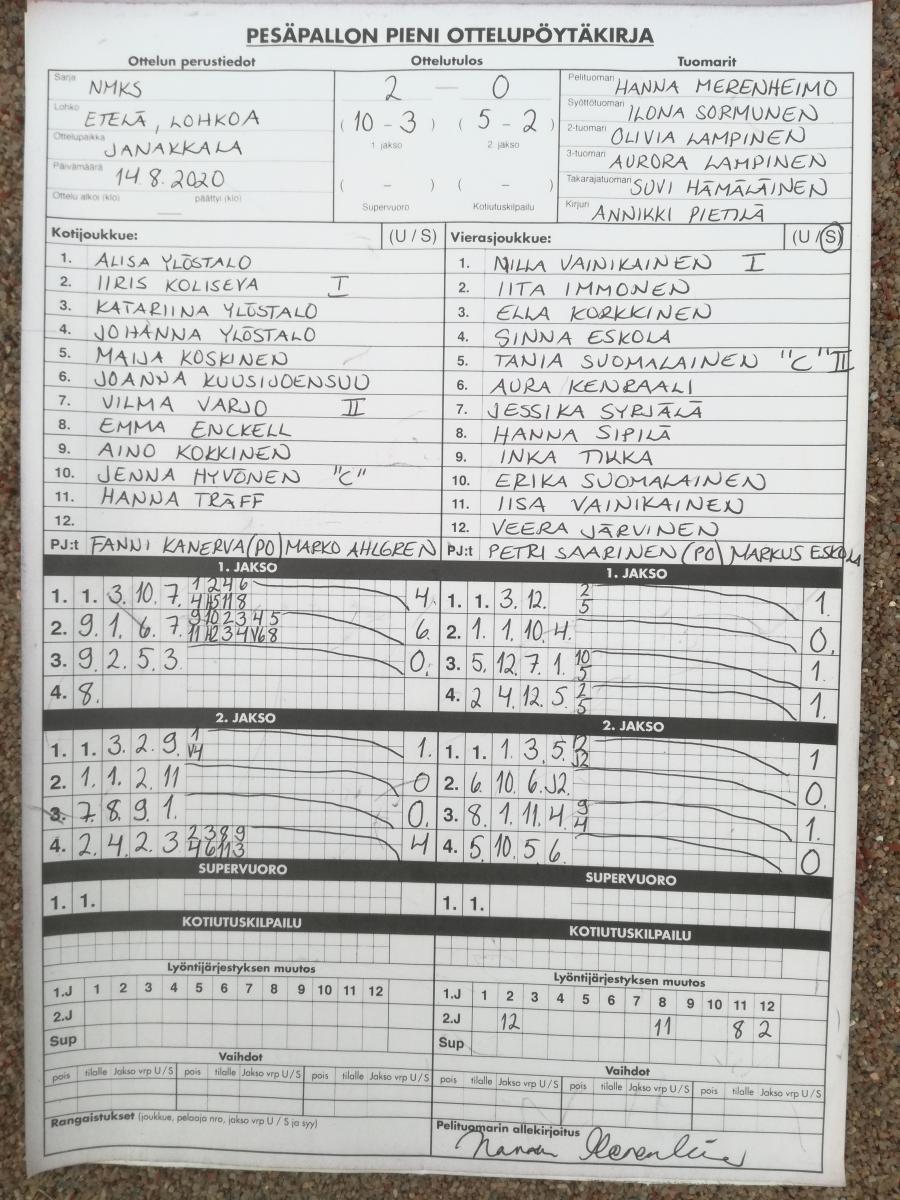 PESÄPALLON PIENI OTTELUPÖYTÄKIRJA
Ottelun perustiedot Ottelutulos Tuomarit
Sarja NMKS
Lohko ETELÄ, LOHKO A
Ottelupaikka JANAKKALA
Päivämäärä 14.8.2020
Ottelu alkoi (klo) päättyi (klo)
2 — 0
( 10 - 3 ) ( 5 - 2 )
1. jakso 2. jakso
( - ) ( - )
Supervuoro Kotiutuskilpailu
Pelituomari HANNA MERENHEIMO
Syöttötuomari ILONA SORMUNEN
2-tuomari OLIVIA LAMPINEN
3-tuomari AURORA LAMPINEN
Takarajatuomari SUVI HÄMÄLÄINEN
Kirjuri ANNIKKI PIETILÄ
Kotijoukkue: (U / S)
1. ALISA YLÖSTALO
2. IIRIS KOLISEVA I
3. KATARIINA YLÖSTALO
4. JOHANNA YLÖSTALO
5. MAIJA KOSKINEN
6. JOANNA KUUSIJOENSUU
7. VILMA VARJO II
8. EMMA ENCKELL
9. AINO KOKKINEN
10. JENNA HYVÖNEN "C"
11. HANNA TRÄFF
12.
PJ:t FANNI KANERVA (PO) MARKO AHLGREN
Vierasjoukkue: (U / S)
1. NILLA VAINIKAINEN I
2. IITA IMMONEN
3. ELLA KORKKINEN
4. SINNA ESKOLA
5. TANIA SUOMALAINEN "C" II
6. AURA KENRAALI
7. JESSIKA SYRJÄLÄ
8. HANNA SIPILÄ
9. INKA TIKKA
10. ERIKA SUOMALAINEN
11. IISA VAINIKAINEN
12. VEERA JÄRVINEN
PJ:t PETRI SAARINEN (PO) MARKUS ESKOLA
1. JAKSO
1. 1. 3. 10. 7. 1 2 4 6 4.
4 5 11 8
2. 9. 1. 6. 7. 9 10 2 3 4 5 6.
11 12 3 4 V6 8
3. 9. 2. 5. 3. 0.
4. 8.
1. JAKSO
1. 1. 3. 12. 2 1.
5
2. 1. 1. 10. 4. 0.
3. 5. 12. 7. 1. 10 1.
5
4. 2 4. 12. 5. 2 1.
5
2. JAKSO
1. 1. 3. 2. 9. 1 1.
V4
2. 1. 1. 2. 11 0
3. 7. 8. 9. 1. 0.
4. 2. 4. 2. 3 2 3 8 9 4
4 6 11 3
2. JAKSO
1. 1. 1. 3. 5. 1
J2
2. 6. 10. 6. J2. 0.
3. 8. 1. 11. 4. 9 1.
4
4. 5. 10. 5. 6. 0
SUPERVUORO
1. 1.
SUPERVUORO
1. 1.
KOTIUTUSKILPAILU
KOTIUTUSKILPAILU
Lyöntijärjestyksen muutos
1.J 1 2 3 4 5 6 7 8 9 10 11 12
2.J
Sup
Lyöntijärjestyksen muutos
1.J 1 2 3 4 5 6 7 8 9 10 11 12
2.J 12 11 8 2
Sup
Vaihdot
pois tilalle Jakso vrp U / S pois tilalle Jakso vrp U / S pois tilalle Jakso vrp U / S
Rangaistukset (joukkue, pelaaja nro, jakso vrp U / S ja syy)
Vaihdot
pois tilalle Jakso vrp U / S pois tilalle Jakso vrp U / S pois tilalle Jakso vrp U / S
Pelituomarin allekirjoitus